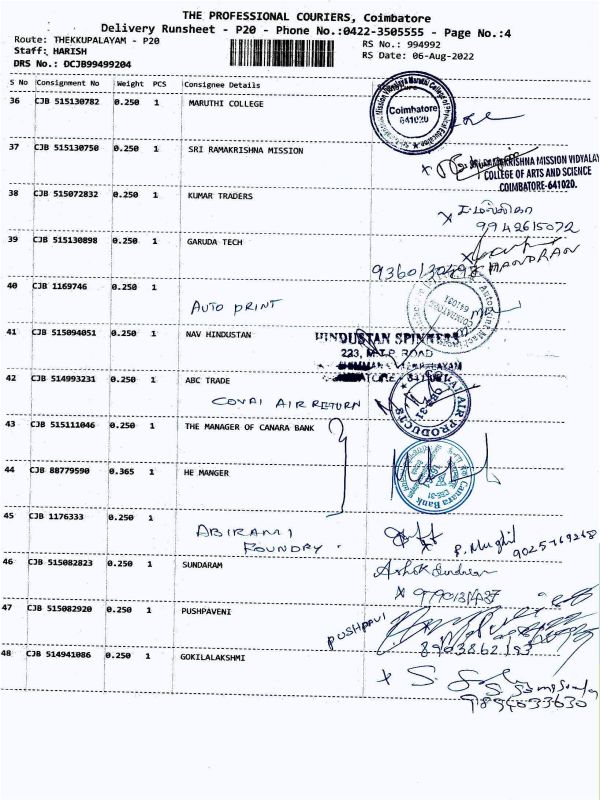 THE PROFESSIONAL COURIERS, Coimbatore
Delivery Runsheet - P20 - Phone No.:0422-3505555 - Page No.:4
Route: THEKKUPALAYAM - P20
RS No.: 994992
Staff: HARISH
RS Date: 06-Aug-2022
DRS No.: DCJB99499204
S No Consignment No Weight PCS Consignee Details
36 CJB 515130782 0.250 1 MARUTHI COLLEGE
Coimbatore
641020
37 CJB 515130750 0.250 1 SRI RAMAKRISHNA MISSION
RAMAKRISHNA MISSION VIDYALAY
COLLEGE OF ARTS AND SCIENCE
COIMBATORE-641020.
38 CJB 515072832 0.250 1 KUMAR TRADERS
9942615072
39 CJB 515130898 0.250 1 GARUDA TECH
40 CJB 1169746 0.250 1
AUTO PRINT
COIMBATORE
641031
41 CJB 515094051 0.250 1 NAV HINDUSTAN
HINDUSTAN SPINNERS
223, ROAD
42 CJB 514993231 0.250 1 ABC TRADE
COVAI AIR RETURN
COVAI AIR PRODUCTS
43 CJB 515111046 0.250 1 THE MANAGER OF CANARA BANK
44 CJB 88779590 0.365 1 HE MANGER
Canara Bank
45 CJB 1176333 0.250 1
ABIRAMI
FOUNDRY.
46 CJB 515082823 0.250 1 SUNDARAM
47 CJB 515082920 0.250 1 PUSHPAVENI
PUSHPAVI
48 CJB 514941086 0.250 1 GOKILALAKSHMI
9894033630